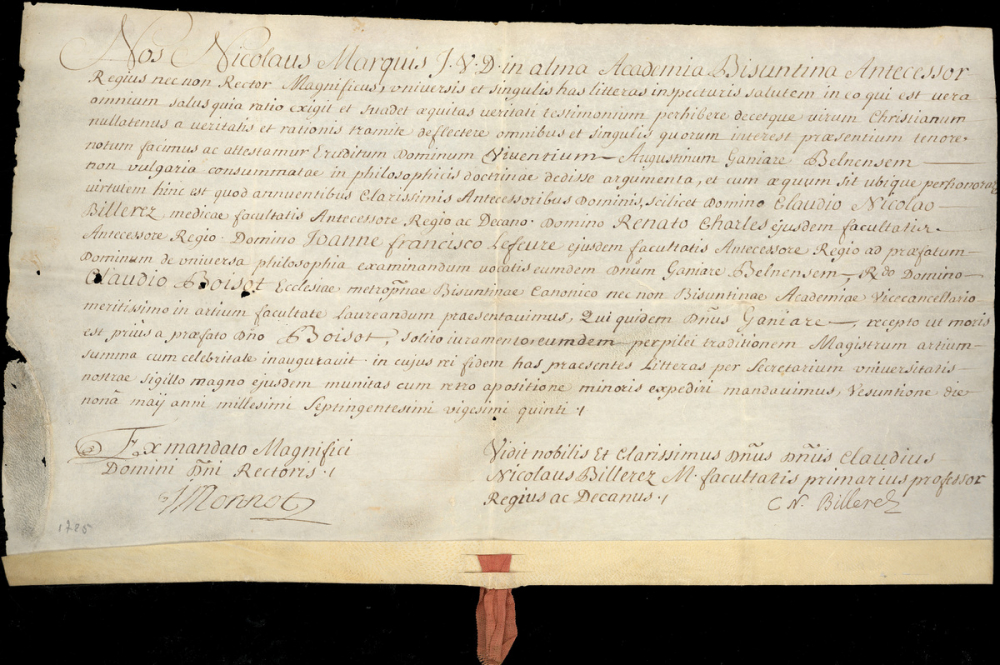 Nos Nicolaus Marquis J.V.D. in alma Academia Bisuntina Antecessor
Regius nec non Rector Magnificus, universis et singulis has litteras inspecturis salutem in eo qui est vera
omnium salus quia ratio exigit et suadet æquitas veritati testimonium perhibere decetque virum Christianum
nullatenus a veritatis et rationis tramite deflectere omnibus et singulis quorum interest præsentium tenore
notum facimus ac attestamur Eruditum Dominum Viventium Augustinum Ganiare Belnensem
non vulgaria consummatae in philosophicis doctrinae dedisse argumenta, et cum æquum sit ubique perhonorari
virtutem hinc est quod annuentibus Clarissimis Antecessoribus Dominis, scilicet Domino Claudio Nicolao
Billerez, medicae facultatis Antecessore Regio ac Decano. Domino Renato Charles ejusdem facultatis
Antecessore Regio. Domino Joanne Francisco Lefeure ejusdem facultatis Antecessore Regio ad præfatum
Dominum de universa philosophia examinandum vocatis eumdem Dñum Ganiare Belnensem, Rdo Domino
Claudio Boisot Ecclesiae metropnae Bisuntinae Canonico nec non Bisuntinae Academiae Vicecancellario
meritissimo in artium facultate Laureandum praesentavimus, Qui quidem Dñus Ganiare, recepto ut moris
est prius a præfato Dño Boisot, solito iuramento eumdem per pilei traditionem Magistrum artium
summa cum celebritate inauguravit. in cujus rei fidem has praesentes Litteras per Secretarium universitatis
nostrae sigillo magno ejusdem munitas cum retro apositione minoris expediri mandavimus, Vesuntione die
nonâ maij anni millesimi Septingentesimi vigesimi quinti.
Ex mandato Magnifici
Domini Dñi Rectoris.
Monnot
Vidit nobilis Et Clarissimus Dñus Dñus Claudius
Nicolaus Billerez M. facultatis primarius professor
Regius ac Decanus.
C N. Billerez
1725